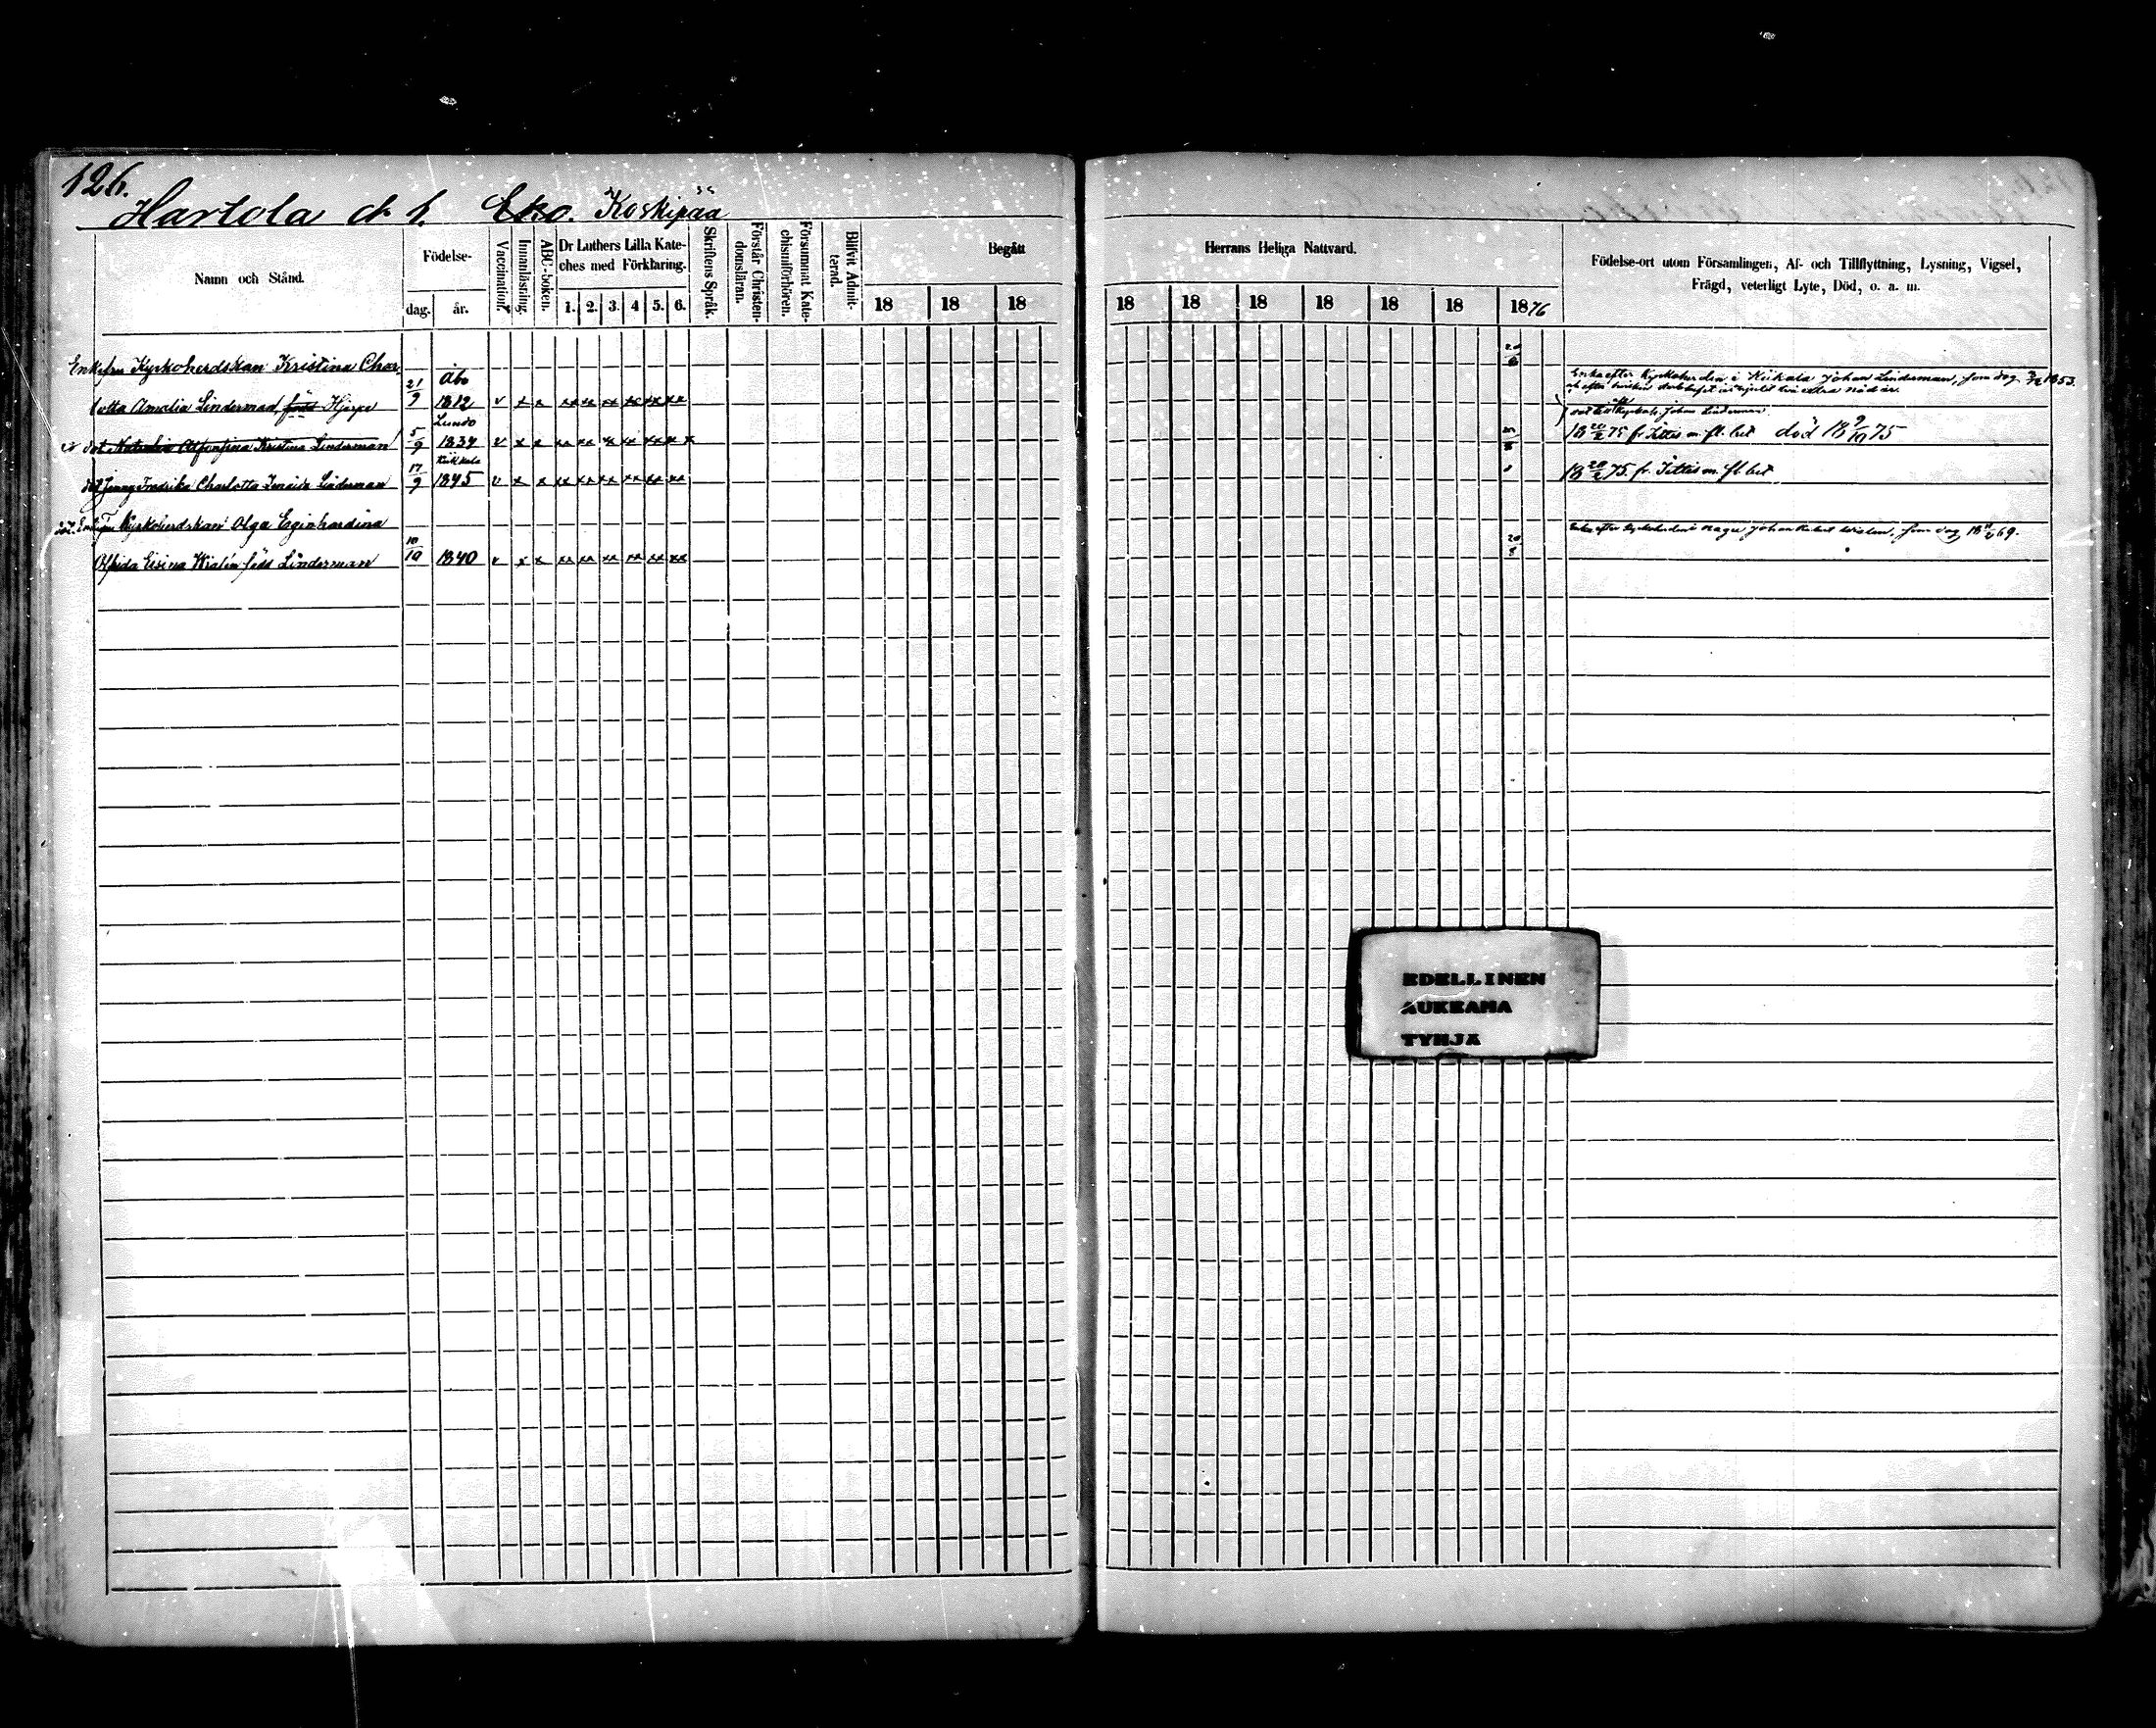 126.
Hartola d. h. Eko. Koskipää
Namn och Stånd.
Födelse-
dag. år.
Vaccination.
Innanläsning.
ABC-boken.
Dr Luthers Lilla Kate-
ches med Förklaring.
1. 2. 3. 4 5. 6.
Skriftens Språk.
Förstår Christen-
domsläran.
Försummat Kate-
chismiförhören.
Blifvit Admit-
terad.
Begått
18 18 18
Herrans Heliga Nattvard.
18 18 18 18 18 18 1876
Födelse-ort utom Församlingen, Af- och Tillflyttning, Lysning, Vigsel,
Frägd, veterligt Lyte, Död, o. a. m.
Enkefru Kyrkoherdskan Kristina Char-
Åbo
lotta Amalia Linderman född Hjerpe 21/9 1812 v x x xx xx xx xx xx xx
Enka efter Kyrkoherden i Kiikala Johan Linderman, som dog 1853.
Lundo
dot. Natalia Alfonsina Kristina Linderman 5/9 1834 v x x xx xx xx xx xx xx
18 20/2 75 fr. Jittis m. fl. bet död 18 9/10 75
Kiikala
dot Jenny Fredrika Charlotta Zenaida Linderman 17/9 1845 v x x xx xx xx xx xx xx
18 20/2 75. fr. Jittis m. fl. bet
Kyrkoherdskan Olga Eginhardina
Enka efter Kyrkoherden i Nagu Johan som dog 18 69.
Alfhida Elsina Widén född Linderman 10/10 1840 v x x xx xx xx xx xx xx
EDELLINEN
AUKEAMA
TYHJÄ